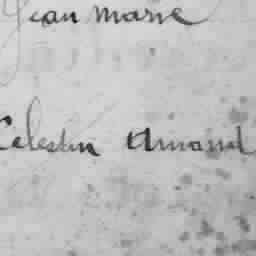 Jean Marie
Celestin Armand